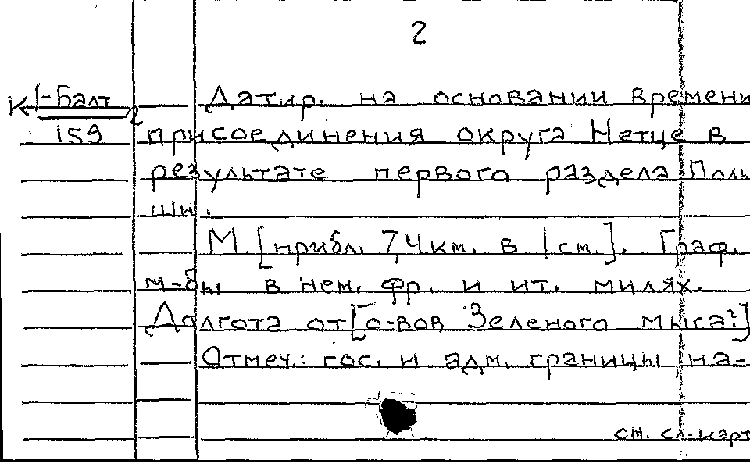 2
К 1-Балт Датир. на основании времени
159 присоединения округа Нетце в
результате первого раздела Поль
ши.
М [прибл. 7,4 км. в 1 см.]. Граф.
м-бы в нем. фр. и ит. милях.
Долгота от [о-вов Зеленого мыса?]
Отмеч.: гос. и адм. границы на-
см. сл. карт